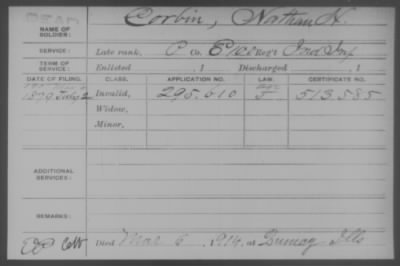 DEAD
NAME OF SOLDIER: Corbin, Nathan H.
SERVICE: Late rank, P Co. E, Reg't Ind Inf
TERM OF SERVICE: Enlisted , 1 Discharged , 1
DATE OF FILING. CLASS. APPLICATION NO. LAW. CERTIFICATE NO.
1879 July 2 Invalid, 295.610 513.585
Widow,
Minor,
ADDITIONAL SERVICES:
REMARKS:
Died Mar 6, 1914, at Ills